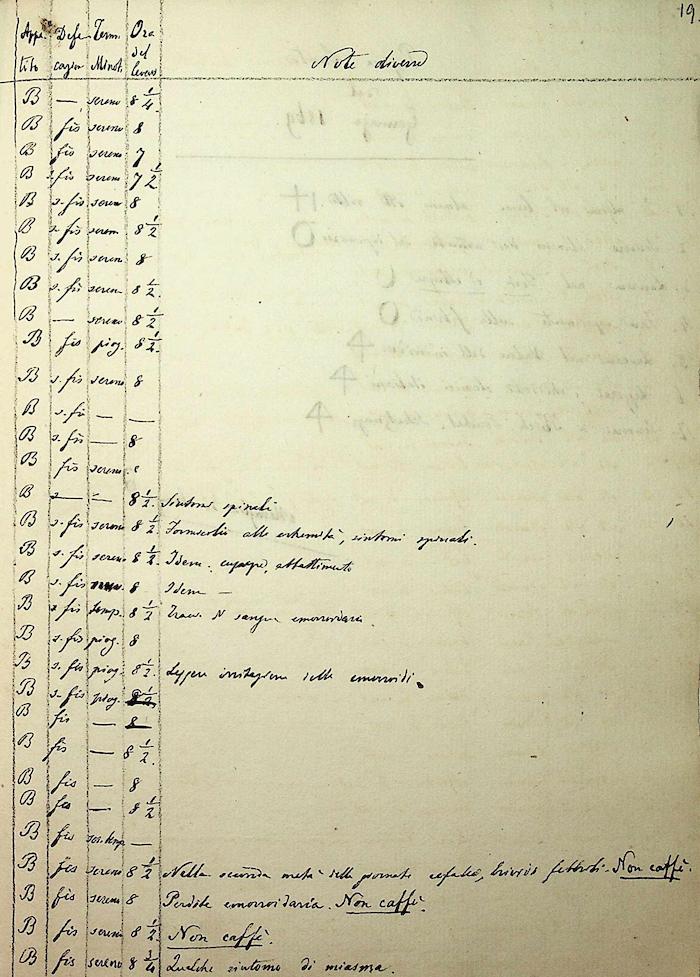 19.
Appe- Defe- Term. Ora
del
tito cazion Minot. levarsi Note diverse
B — sereno 8 1/4
B fis sereno 8
B fis sereno 7
B s. fis seren 7 1/2
B s. fis seren 8
B s. fis seren. 8 1/2
B s. fis seren 8
B s. fis seren 8 1/2.
B — sereno 8 1/2
B fis piog. 8 1/2.
B s. fis sereno 8
B s. fis — —
B s. fis — 8
B fis sereno
B — 8 1/2 Sintomi spinali
B s. fis sereno 8 1/2 Formicolio alle estremità, sintomi spinali.
B s. fis sereno 8 1/2 Idem. abbattimento
B s. fis 8 Idem —
B s. fis temp. 8 1/2 sangue emorroidario.
B s. fis piog. 8
B s. fis piog. 8 1/2. Leggera irritazione delle emorroidi.
B s. fis piog. 8 1/2
B fis — 8
B fis — 8 1/2.
B fis — 8
B fis — 8 1/2
B fis —
B fis sereno 8 1/2 Nella seconda metà della giornata cefalea, brividi febbrili. Non caffè.
B fis sereno 8 Perdite emorroidaria. Non caffè.
B fis sereno 8 1/2. Non caffè.
B fis sereno 8 3/4 Qualche sintomo di miasma.